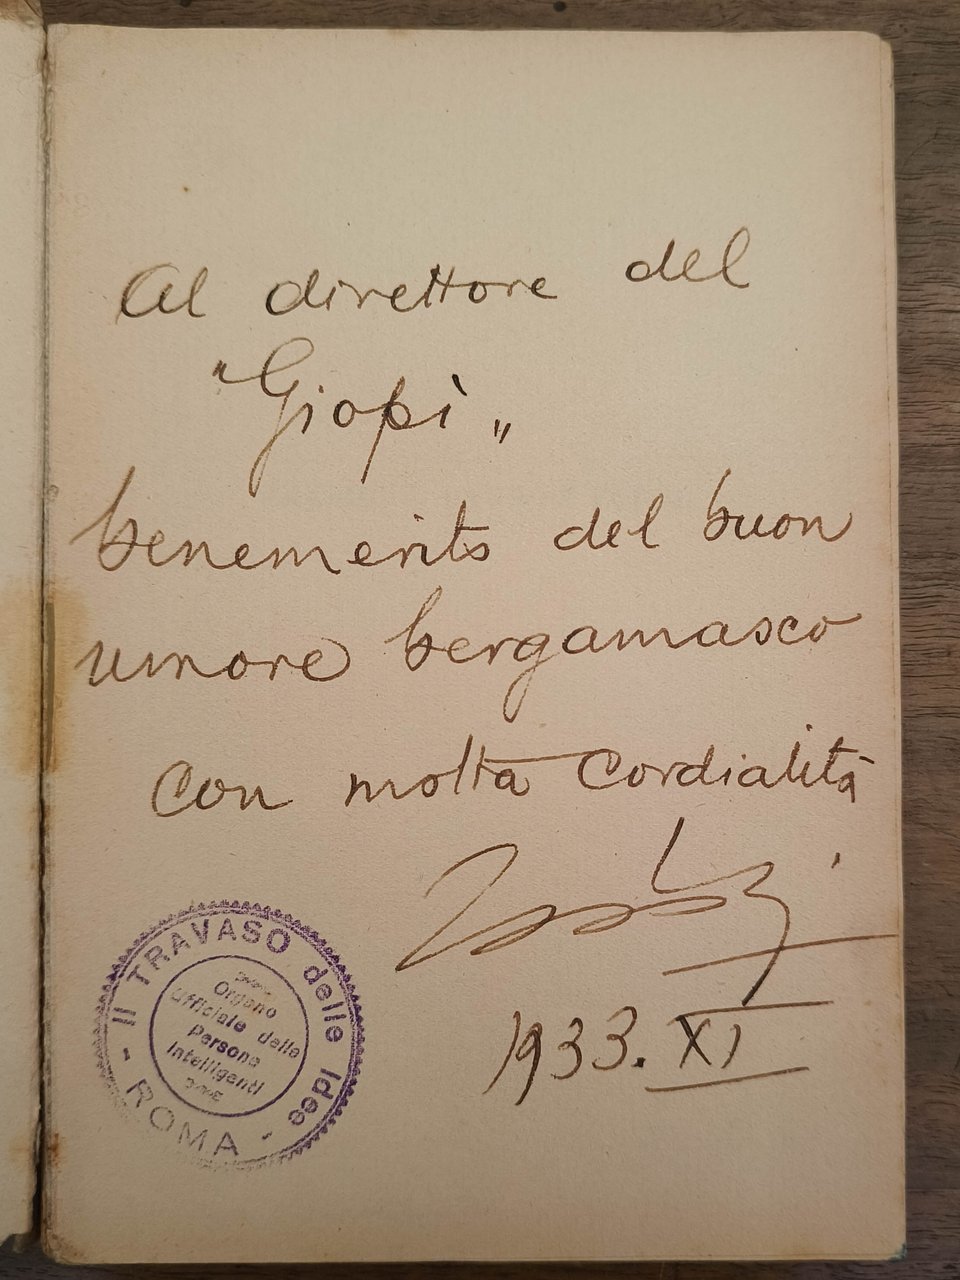 Al direttore del
"Giopì"
benemerito del buon
umore bergamasco
con molta cordialità
1933. XI
Il TRAVASO delle Idee
- ROMA -
Organo
Ufficiale delle
Persone
Intelligenti